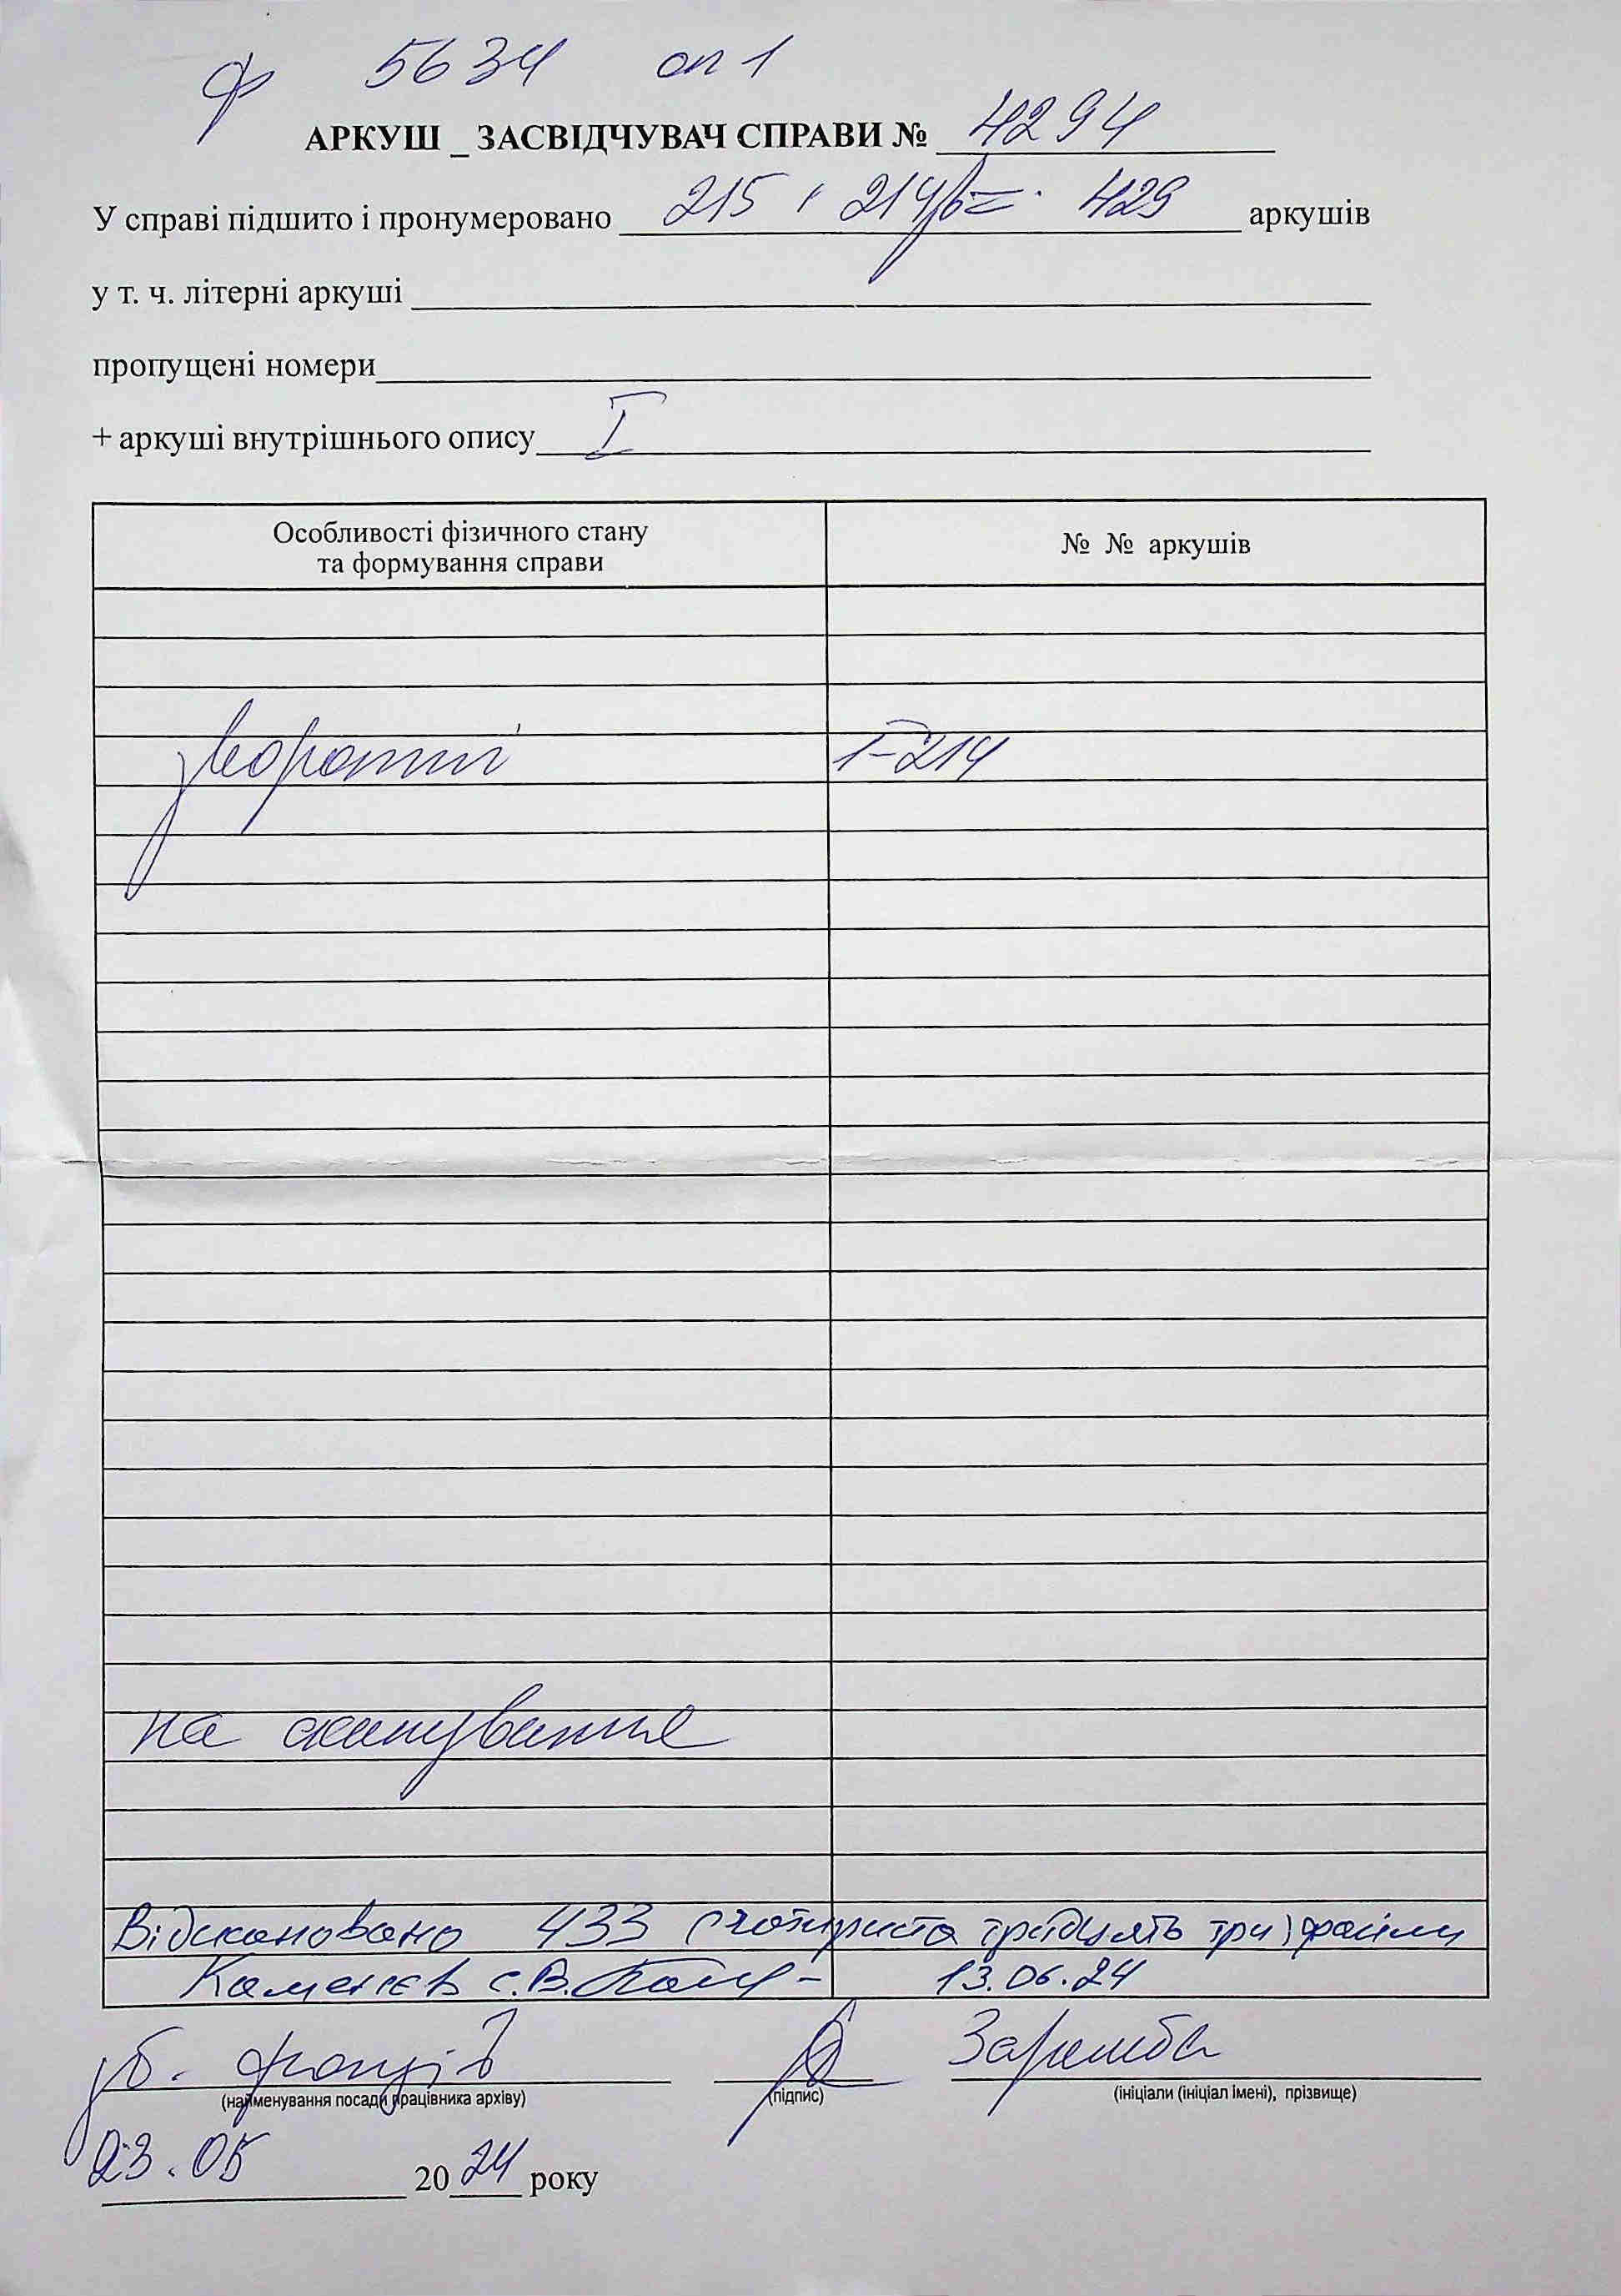 ф 5634 оп 1
АРКУШ _ ЗАСВІДЧУВАЧ СПРАВИ № 4294
У справі підшито і пронумеровано 215 + 214 = 429 аркушів
у т. ч. літерні аркуші
пропущені номери
+ аркуші внутрішнього опису I
Особливості фізичного стану
та формування справи
№ № аркушів
звороти 1-214
на сканування
Відскановано 433 (чотириста тридцять три) файли
Каменєв С.В. 13.06.24
зб. фондів Заремба
(найменування посади працівника архіву) (підпис) (ініціали (ініціал імені), прізвище)
23.05 2024 року